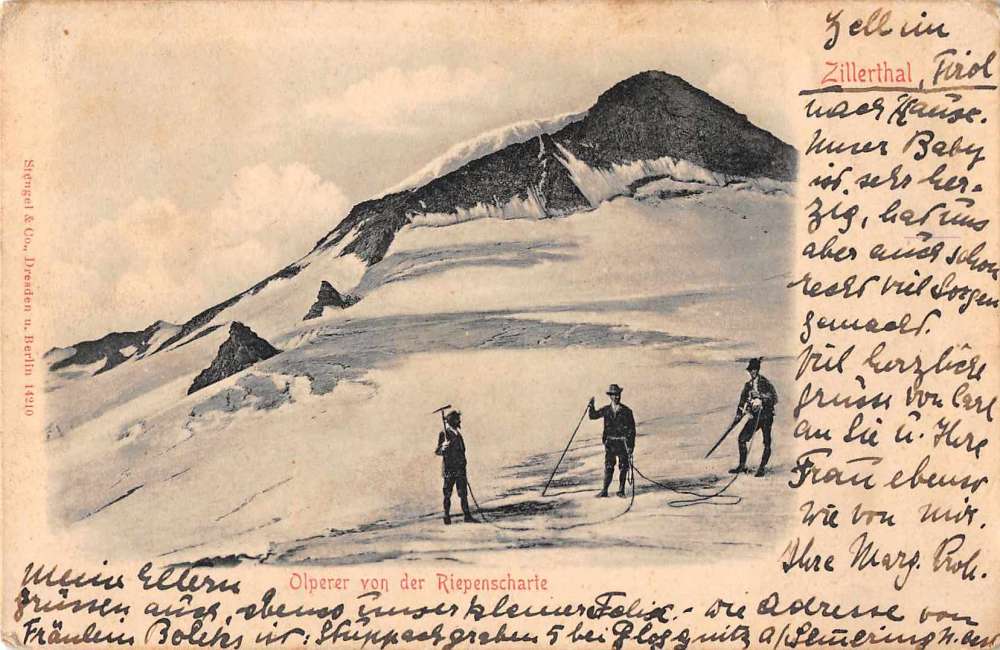 Zell im
Zillerthal, Tirol
nach Hause.
Unser Baby
ist sehr her-
zig, hat uns
aber auch schon
recht viel Sorgen
gemacht.
Viel herzliche
Grüsse von Carl
an Sie u. Ihre
Frau ebenso
wie von mir.
Ihre Marg.
Stengel & Co., Dresden u. Berlin 14210
Olperer von der Riepenscharte
Meine Eltern
grüssen auch, ebenso unser kleiner Felix. - Die Adresse von
Fräulein ist: Stuppachgraben 5 bei Gloggnitz a/Semmering